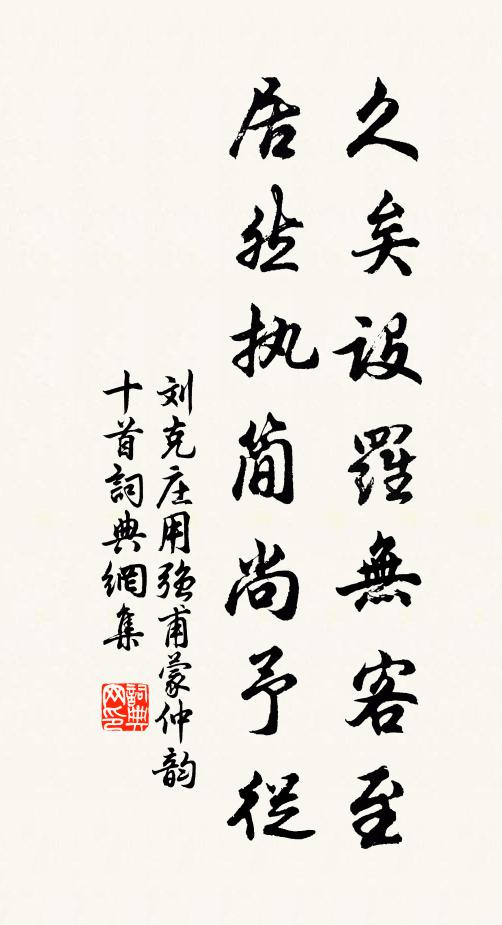 久矣設羅無客至
居然执簡尚予從
刘克庄用强甫蒙仲韵
十首詞典網集
詞典
网印